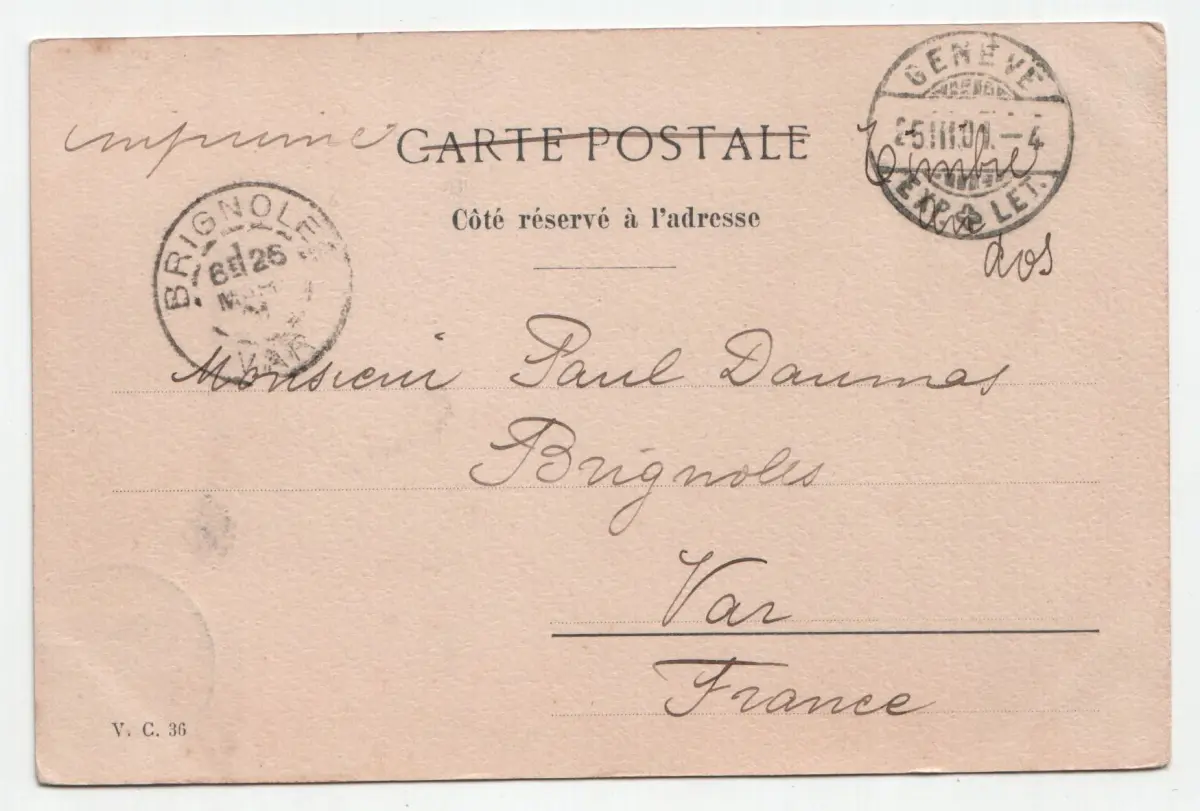 GENÈVE
25.III.01.–4
EXP. LET.
imprimé
CARTE POSTALE
Timbre
dos
Côté réservé à l'adresse
BRIGNOLES
6E 26
VAR
Monsieur Paul Daumas
Brignoles
Var
France
V. C. 36